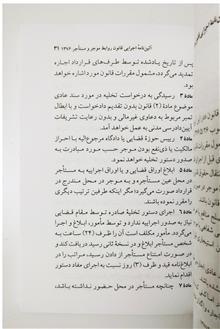 آئین‌نامهٔ اجرایی قانون روابط موجر و مستأجر ۱۳۷۶ ۳۱
پس از تاریخ یادشده توسط طرف‌های قرارداد اجاره
تمدید می‌گردد، مشمول مقررات قانون مورد اشاره خواهد
بود.
مادهٔ ۳ رسیدگی به درخواست تخلیه در مورد سند عادی
موضوع مادهٔ (۲) قانون بدون تقدیم دادخواست و با ابطال
تمبر مربوط به دعاوی غیرمالی و بدون رعایت تشریفات
آیین‌دادرسی مدنی به عمل خواهد آمد.
مادهٔ ۴ رییس حوزهٔ قضایی یا دادگاه مرجوع‌الیه با احراز
مالکیت یا ذی‌نفع بودن موجر حسب مورد مبادرت به
صدور دستور تخلیه خواهد نمود.
مادهٔ ۵ ابلاغ اوراق قضایی و یا اوراق اجراییه به مستأجر
در محل عین مستأجره و به موجر در محل مندرج در
قرارداد صورت می‌گیرد؛ مگر اینکه طرفین ترتیب دیگری
را مقرر نموده باشند.
مادهٔ ۶ اجرای دستور تخلیهٔ صادره توسط مقام قضایی
نیاز به صدور اجراییه ندارد و توسط مأمور، ابلاغ و اجرا
می‌گردد. مأمور مکلف است آن را ظرف (۲۴) ساعت به
شخص مستأجر ابلاغ و در نسخهٔ ثانی رسید دریافت کند و
در صورت امتناع مستأجر از دادن رسید، مراتب را در
ابلاغ‌نامه قید و ظرف (۳) روز نسبت به اجرای مفاد دستور
اقدام نماید.
مادهٔ ۷ چنانچه مستأجر در محل حضور نداشته باشد،